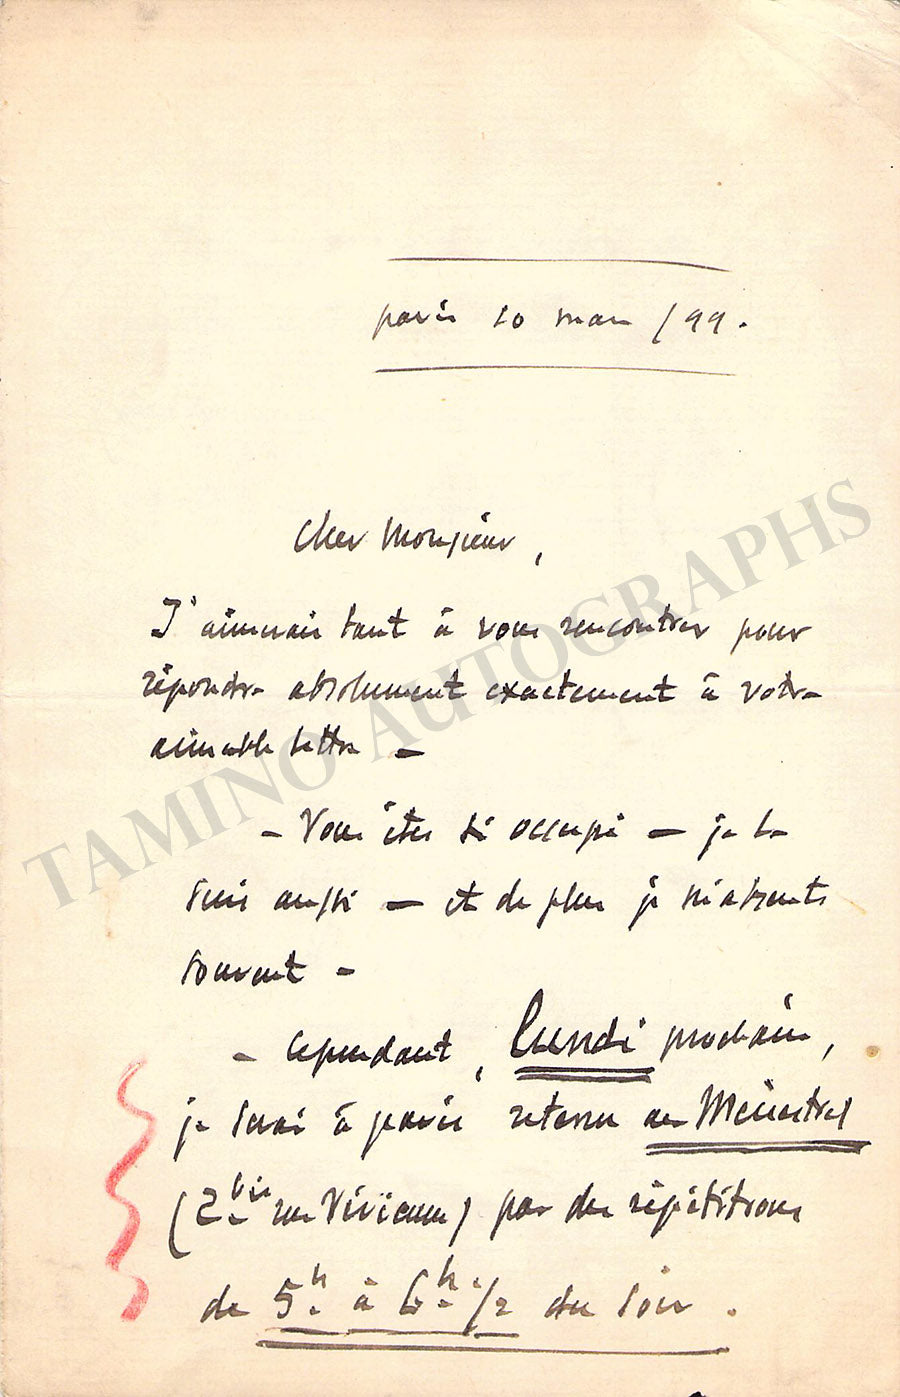 paris 10 mars /99.
Cher Monsieur,
J'aimerais tant à vous rencontrer pour
répondre absolument exactement à votre
aimable lettre —
— Vous êtes si occupé — je le
suis aussi — et de plus je m'absente
souvent —
— Cependant, lundi prochain,
je serai à paris retenu au Ménestrel
(2 bis rue Vivienne) par des répétitions
de 5h à 6h 1/2 du soir.
TAMINO AUTOGRAPHS